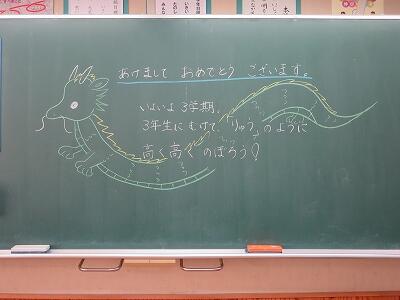 あけまして おめでとう ございます。
いよいよ 3学期。
3年生に むけて、「りゅう」のように
高く高く のぼろう!